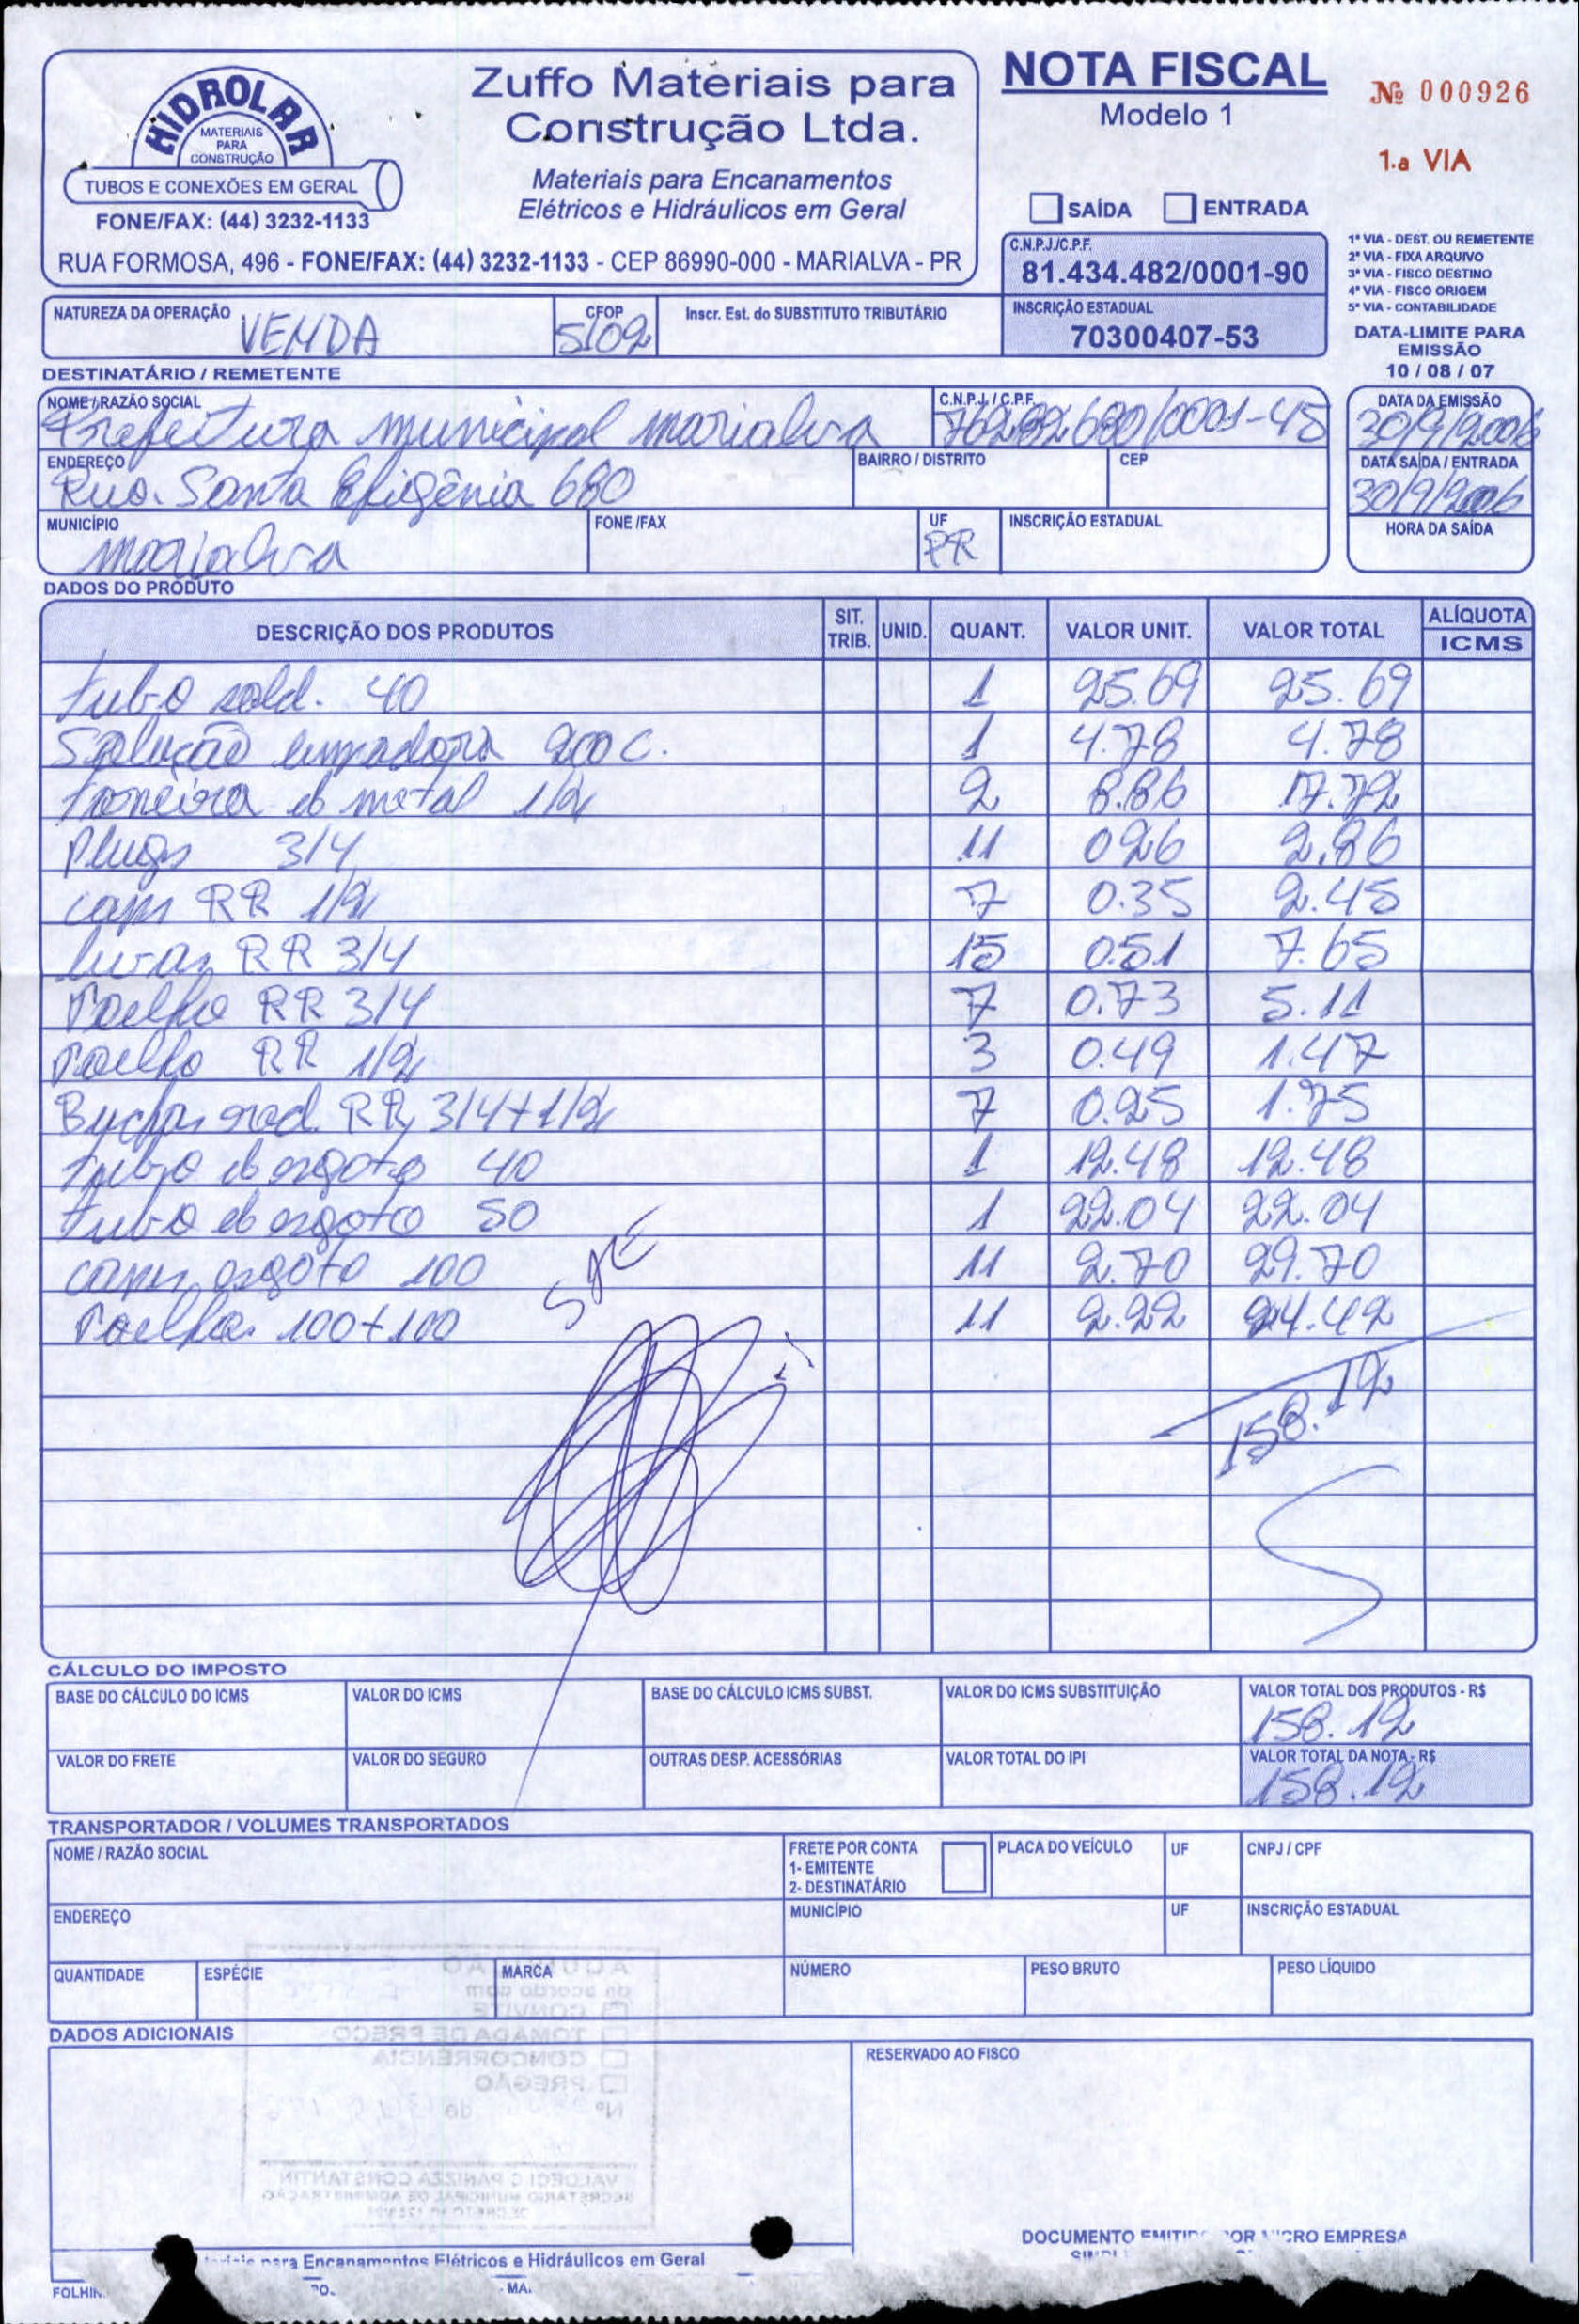 HIDROLAR
MATERIAIS
PARA
CONSTRUÇÃO
TUBOS E CONEXÕES EM GERAL
FONE/FAX: (44) 3232-1133
Zuffo Materiais para
Construção Ltda.
Materiais para Encanamentos
Elétricos e Hidráulicos em Geral
RUA FORMOSA, 496 - FONE/FAX: (44) 3232-1133 - CEP 86990-000 - MARIALVA - PR
NOTA FISCAL
Modelo 1
Nº 000926
1.a VIA
SAÍDA ENTRADA
C.N.P.J./C.P.F.
81.434.482/0001-90
INSCRIÇÃO ESTADUAL
70300407-53
1ª VIA - DEST. OU REMETENTE
2ª VIA - FIXA ARQUIVO
3ª VIA - FISCO DESTINO
4ª VIA - FISCO ORIGEM
5ª VIA - CONTABILIDADE
DATA-LIMITE PARA
EMISSÃO
10 / 08 / 07
NATUREZA DA OPERAÇÃO VENDA
CFOP 5102
Inscr. Est. do SUBSTITUTO TRIBUTÁRIO
DESTINATÁRIO / REMETENTE
NOME / RAZÃO SOCIAL
Prefeitura municipal marialva
C.N.P.J. / C.P.F.
76.282.680/0001-45
DATA DA EMISSÃO
30/9/2006
ENDEREÇO
Rua. Santa Efigênia 680
BAIRRO / DISTRITO
CEP
DATA SAÍDA / ENTRADA
30/9/2006
MUNICÍPIO
marialva
FONE /FAX
UF
PR
INSCRIÇÃO ESTADUAL
HORA DA SAÍDA
DADOS DO PRODUTO
DESCRIÇÃO DOS PRODUTOS SIT. TRIB. UNID. QUANT. VALOR UNIT. VALOR TOTAL ALÍQUOTA ICMS
tubo sold. 40 1 25.69 25.69
Solução limpadora 200 C. 1 4.78 4.78
torneira de metal 1/2 2 8.86 17.72
Plugs 3/4 11 026 2.86
caps RR 1/2 7 0.35 2.45
luvas RR 3/4 15 0.51 7.65
Joelho RR 3/4 7 0.73 5.11
Joelho RR 1/2 3 0.49 1.47
Buchas red. RR, 3/4+1/2 7 0.25 1.75
tubo de esgoto 40 1 12.48 12.48
tubo de esgoto 50 1 22.04 22.04
caps esgoto 100 11 2.70 29.70
Joelhos 100+100 11 2.22 24.42
158.12
CÁLCULO DO IMPOSTO
BASE DO CÁLCULO DO ICMS VALOR DO ICMS BASE DO CÁLCULO ICMS SUBST. VALOR DO ICMS SUBSTITUIÇÃO VALOR TOTAL DOS PRODUTOS - R$
158.12
VALOR DO FRETE VALOR DO SEGURO OUTRAS DESP. ACESSÓRIAS VALOR TOTAL DO IPI VALOR TOTAL DA NOTA - R$
158.12
TRANSPORTADOR / VOLUMES TRANSPORTADOS
NOME / RAZÃO SOCIAL
FRETE POR CONTA
1- EMITENTE
2- DESTINATÁRIO
PLACA DO VEÍCULO UF CNPJ / CPF
ENDEREÇO MUNICÍPIO UF INSCRIÇÃO ESTADUAL
QUANTIDADE ESPÉCIE MARCA NÚMERO PESO BRUTO PESO LÍQUIDO
DADOS ADICIONAIS
RESERVADO AO FISCO
DOCUMENTO POR MICRO EMPRESA
para Encanamentos Elétricos e Hidráulicos em Geral